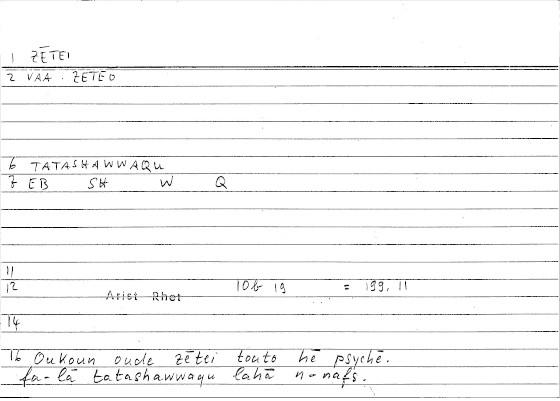 1 ZĒTEI
2 VAA : ZETEO
6 TATASHAWWAQU
7 EB SH W Q
11
12 Arist Rhet 10b 19 = 199, 11
14
16 Oukoun oude zētei touto hē psychē.
fa-lā tatashawwaqu lahā n-nafs.